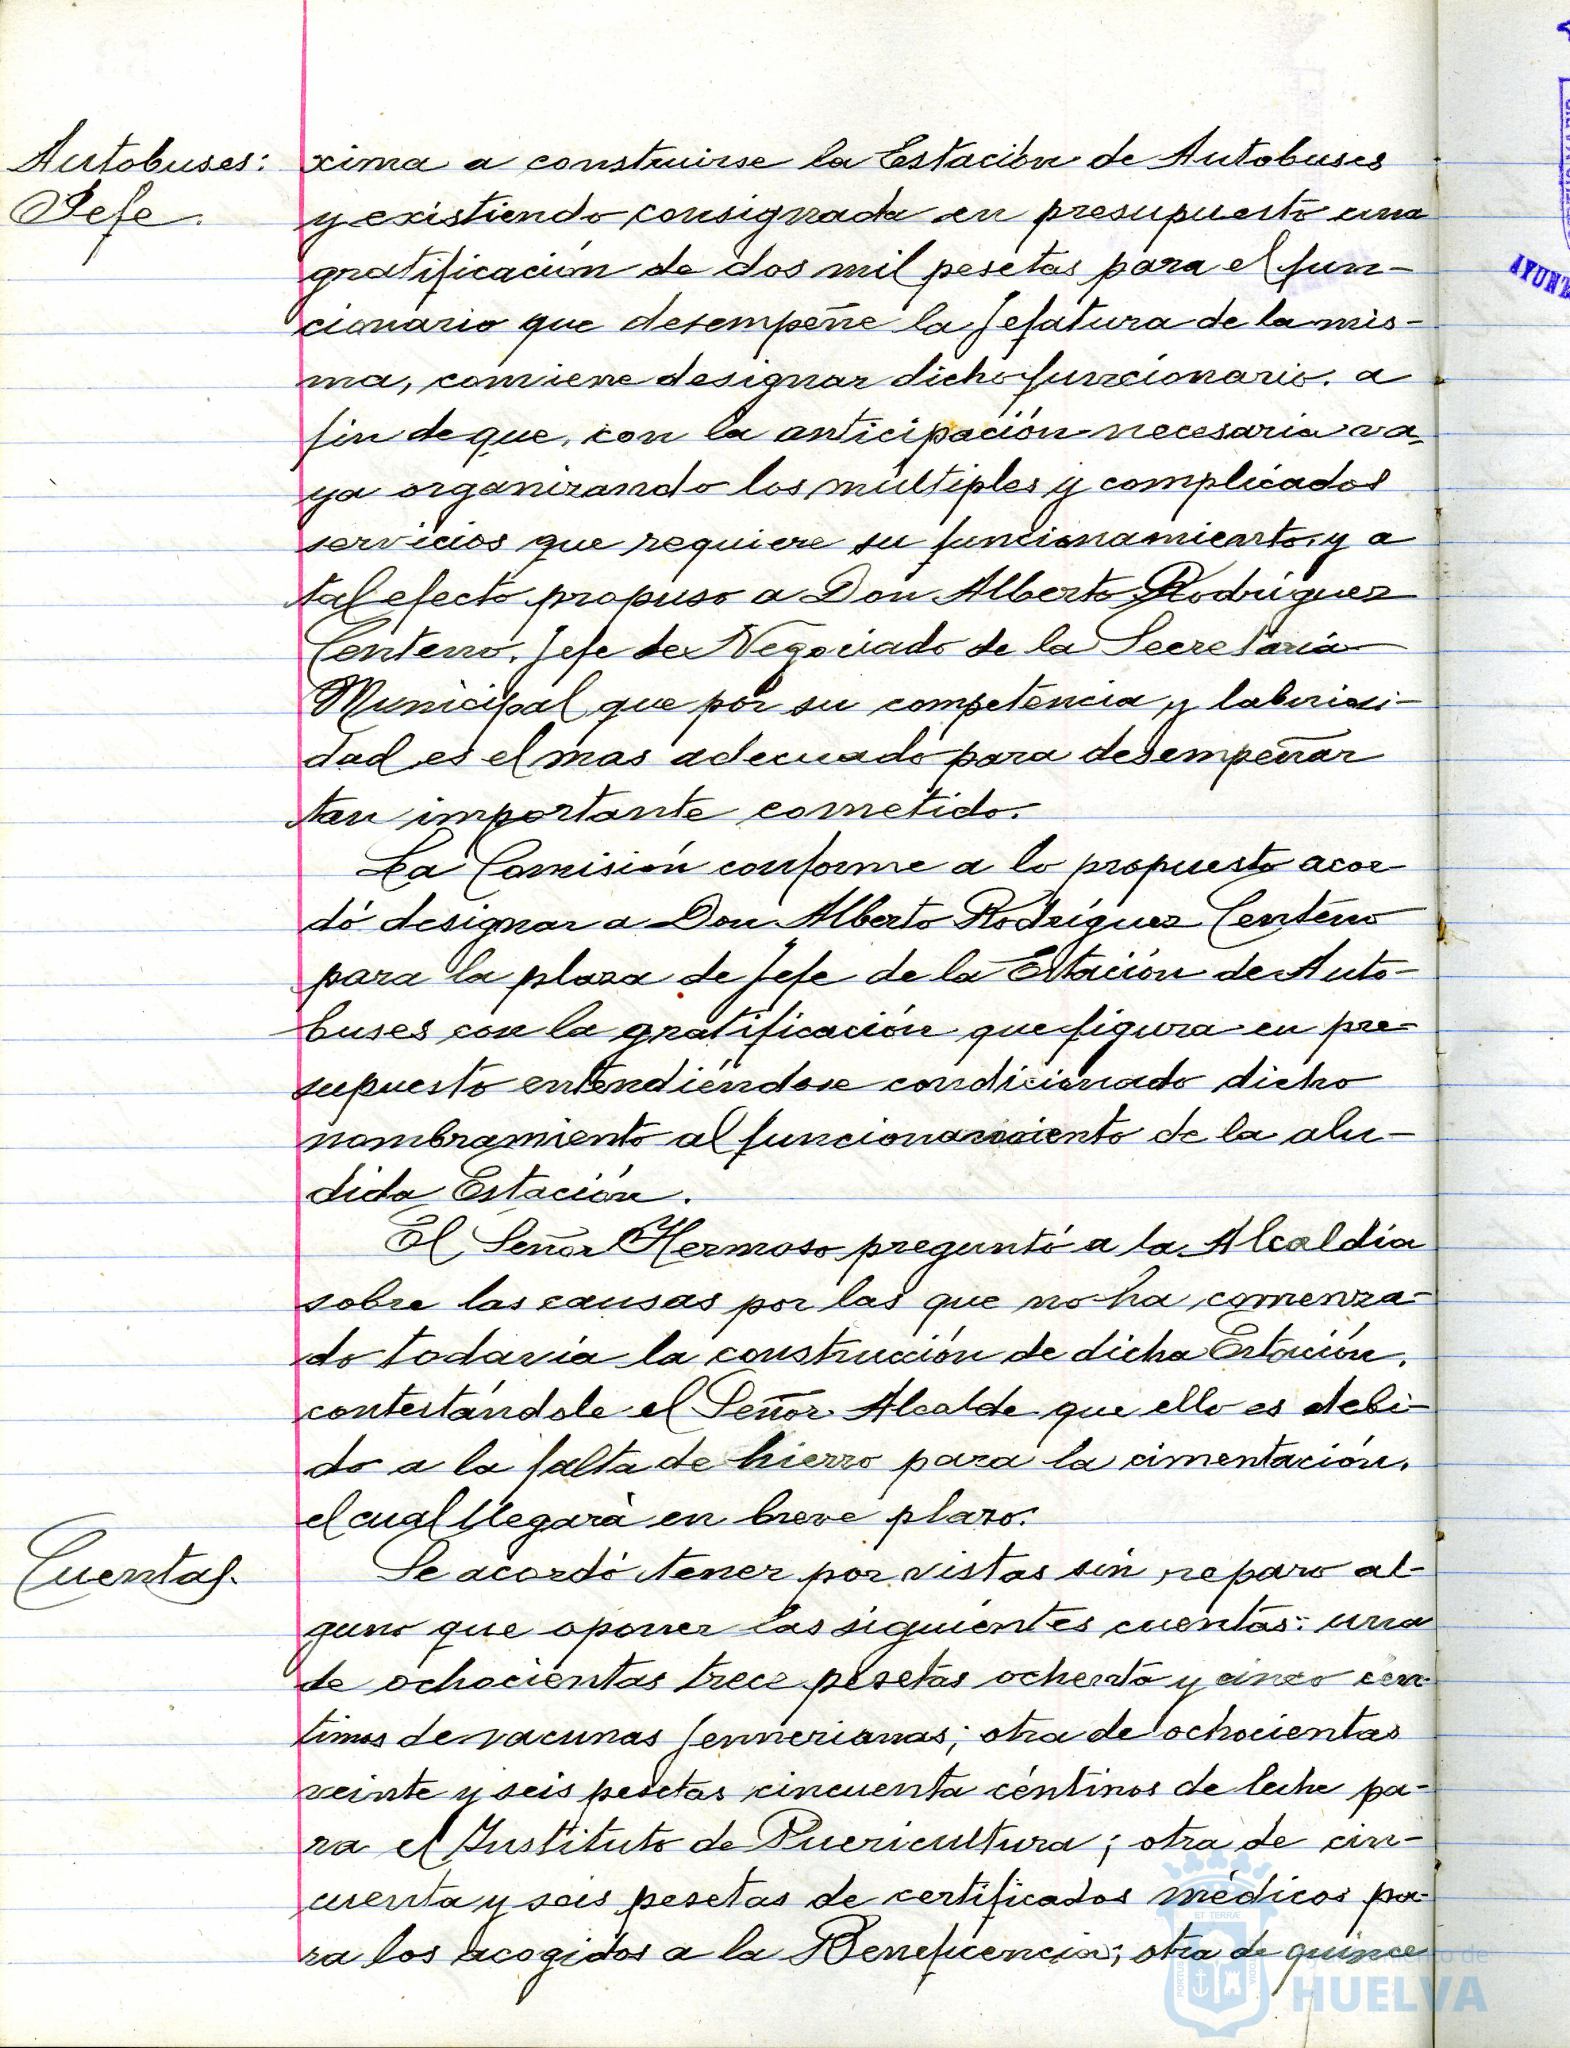 Autobuses:
Jefe.
xima a construirse la Estación de Autobuses
y existiendo consignada en presupuesto una
gratificación de dos mil pesetas para el fun-
cionario que desempeñe la Jefatura de la mis-
ma, conviene designar dicho funcionario, a
fin de que, con la anticipación necesaria va-
ya organizando los múltiples y complicados
servicios que requiere su funcionamiento, y a
tal efecto propuso a Don Alberto Rodríguez
Centeno, Jefe de Negociado de la Secretaría
Municipal que por su competencia y laboriosi-
dad es el mas adecuado para desempeñar
tan importante cometido.
La Comisión conforme a lo propuesto acor
dó designar a Don Alberto Rodríguez Centeno
para la plaza de Jefe de la Estación de Auto-
buses con la gratificación que figura en pre-
supuesto entendiéndose condicionado dicho
nombramiento al funcionamiento de la alu-
dida Estación.
El Señor Hermoso preguntó a la Alcaldía
sobre las causas por las que no ha comenza-
do todavía la construcción de dicha Estación,
contestándole el Señor Alcalde que ello es debi-
do a la falta de hierro para la cimentación,
el cual llegará en breve plazo.
Cuentas.
Se acordó tener por vistas sin reparo al-
guno que oponer las siguientes cuentas: una
de ochocientas trece pesetas ochenta y cinco cén-
timos de vacunas Jennerianas; otra de ochocientas
veinte y seis pesetas cincuenta céntimos de leche pa-
ra el Instituto de Puericultura; otra de cin-
cuenta y seis pesetas de certificados médicos pa-
ra los acogidos a la Beneficencia; otra de quince
Ayuntamiento de
HUELVA